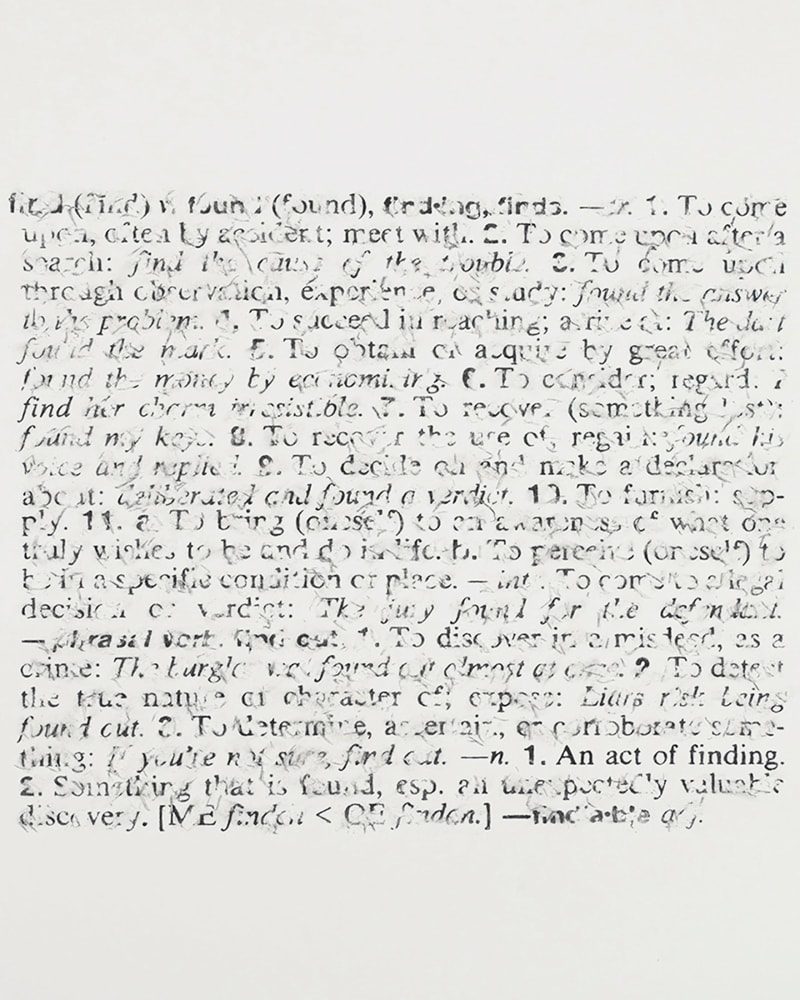 find (find) v. found (found), finding, finds. —tr. 1. To come
upon, often by accident; meet with. 2. To come upon after a
search: find the cause of the trouble. 3. To come upon
through observation, experience, or study: found the answer
to the problem. 4. To succeed in reaching; arrive at: The dart
found the mark. 5. To obtain or acquire by great effort:
found the money by economizing. 6. To consider; regard: I
find her charm irresistible. 7. To recover (something lost):
found my keys. 8. To recover the use of; regain: found his
voice and replied. 9. To decide on and make a declaration
about: deliberated and found a verdict. 10. To furnish; sup-
ply. 11. a. To bring (oneself) to an awareness of what one
truly wishes to be and do in life. b. To perceive (oneself) to
be in a specific condition or place. —intr. To come to a legal
decision or verdict: The jury found for the defendant.
—phrasal verb. find out. 1. To discover in a misdeed, as a
crime: The burglar was found out almost at once. 2. To detect
the true nature or character of; expose: Liars risk being
found out. 3. To determine, ascertain, or corroborate some-
thing: If you're not sure, find out. —n. 1. An act of finding.
2. Something that is found, esp. an unexpectedly valuable
discovery. [ME finden < OE findan.] —find'a·ble adj.